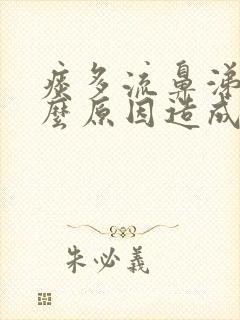 痰多流鼻涕
麼原因造成
朱必義